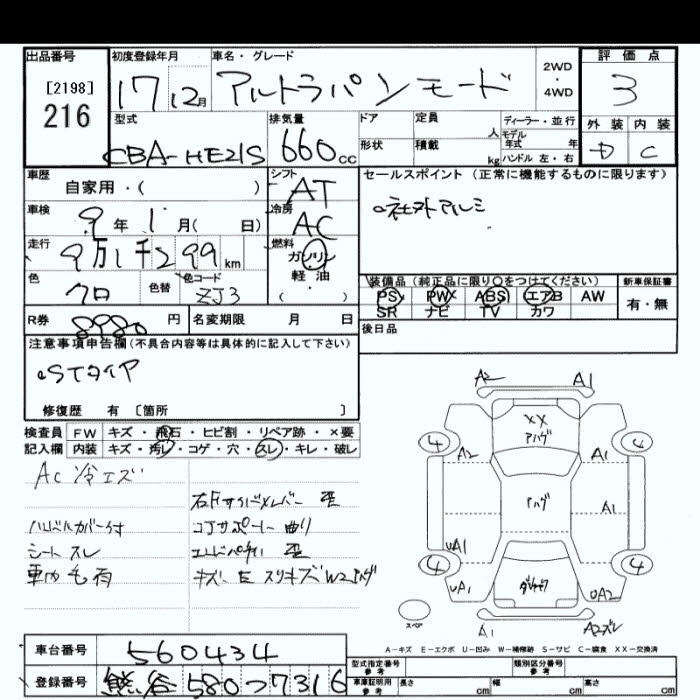 出品番号 初度登録年月 車名・グレード 2WD・4WD 評価点
[2198]
216
17 12月 アルトラパン モード 3
型式 排気量 ドア 定員 人 ディーラー・並行
外装 内装
CBA-HE21S 660cc 形状 積載 kg モデル年式 年 ハンドル 左・右
C
車歴 自家用・( ) シフト AT
セールスポイント (正常に機能するものに限ります)
車検 9年1月( 日) 冷房 AC
社外アルミ
走行 9万1千299km 燃料 ガソリン 軽・油 ( )
色 クロ 色替 色コード ZJ3
装備品 (純正品に限り○をつけてください) 新車保証書
PS PW ABS エアB AW 有・無
SR ナビ TV カワ
R券 8980円 名変期限 月 日
後日品
注意事項申告欄(不具合内容等は具体的に記入して下さい)
STタイヤ
修復歴 有 〔箇所 〕
検査員 FW キズ・飛石・ヒビ割・リペア跡・×要
記入欄 内装 キズ・汚レ・コゲ・穴・スレ・キレ・破レ
AC冷エズ
右Fサイドメンバー 歪
ハンドルカバー付 コアサポート 曲り
シート スレ エンドパネル 歪
車内毛有 キズ E スリキズ W2 アハグ
A2 A1
XX
アハグ
4 4
A2 A1
アハグ A1
uA1
4 4
uA1 uA2
スペア A1 A2ズレ
A-キズ E-エクボ U-凹み W-補修跡 S-サビ C-腐食 XX-交換済
車台番号 560434
型式指定番号 参考 類別区分番号 参考
登録番号 熊谷580ワ7316
車庫証明用 参考 長さ cm 幅 cm 高さ cm